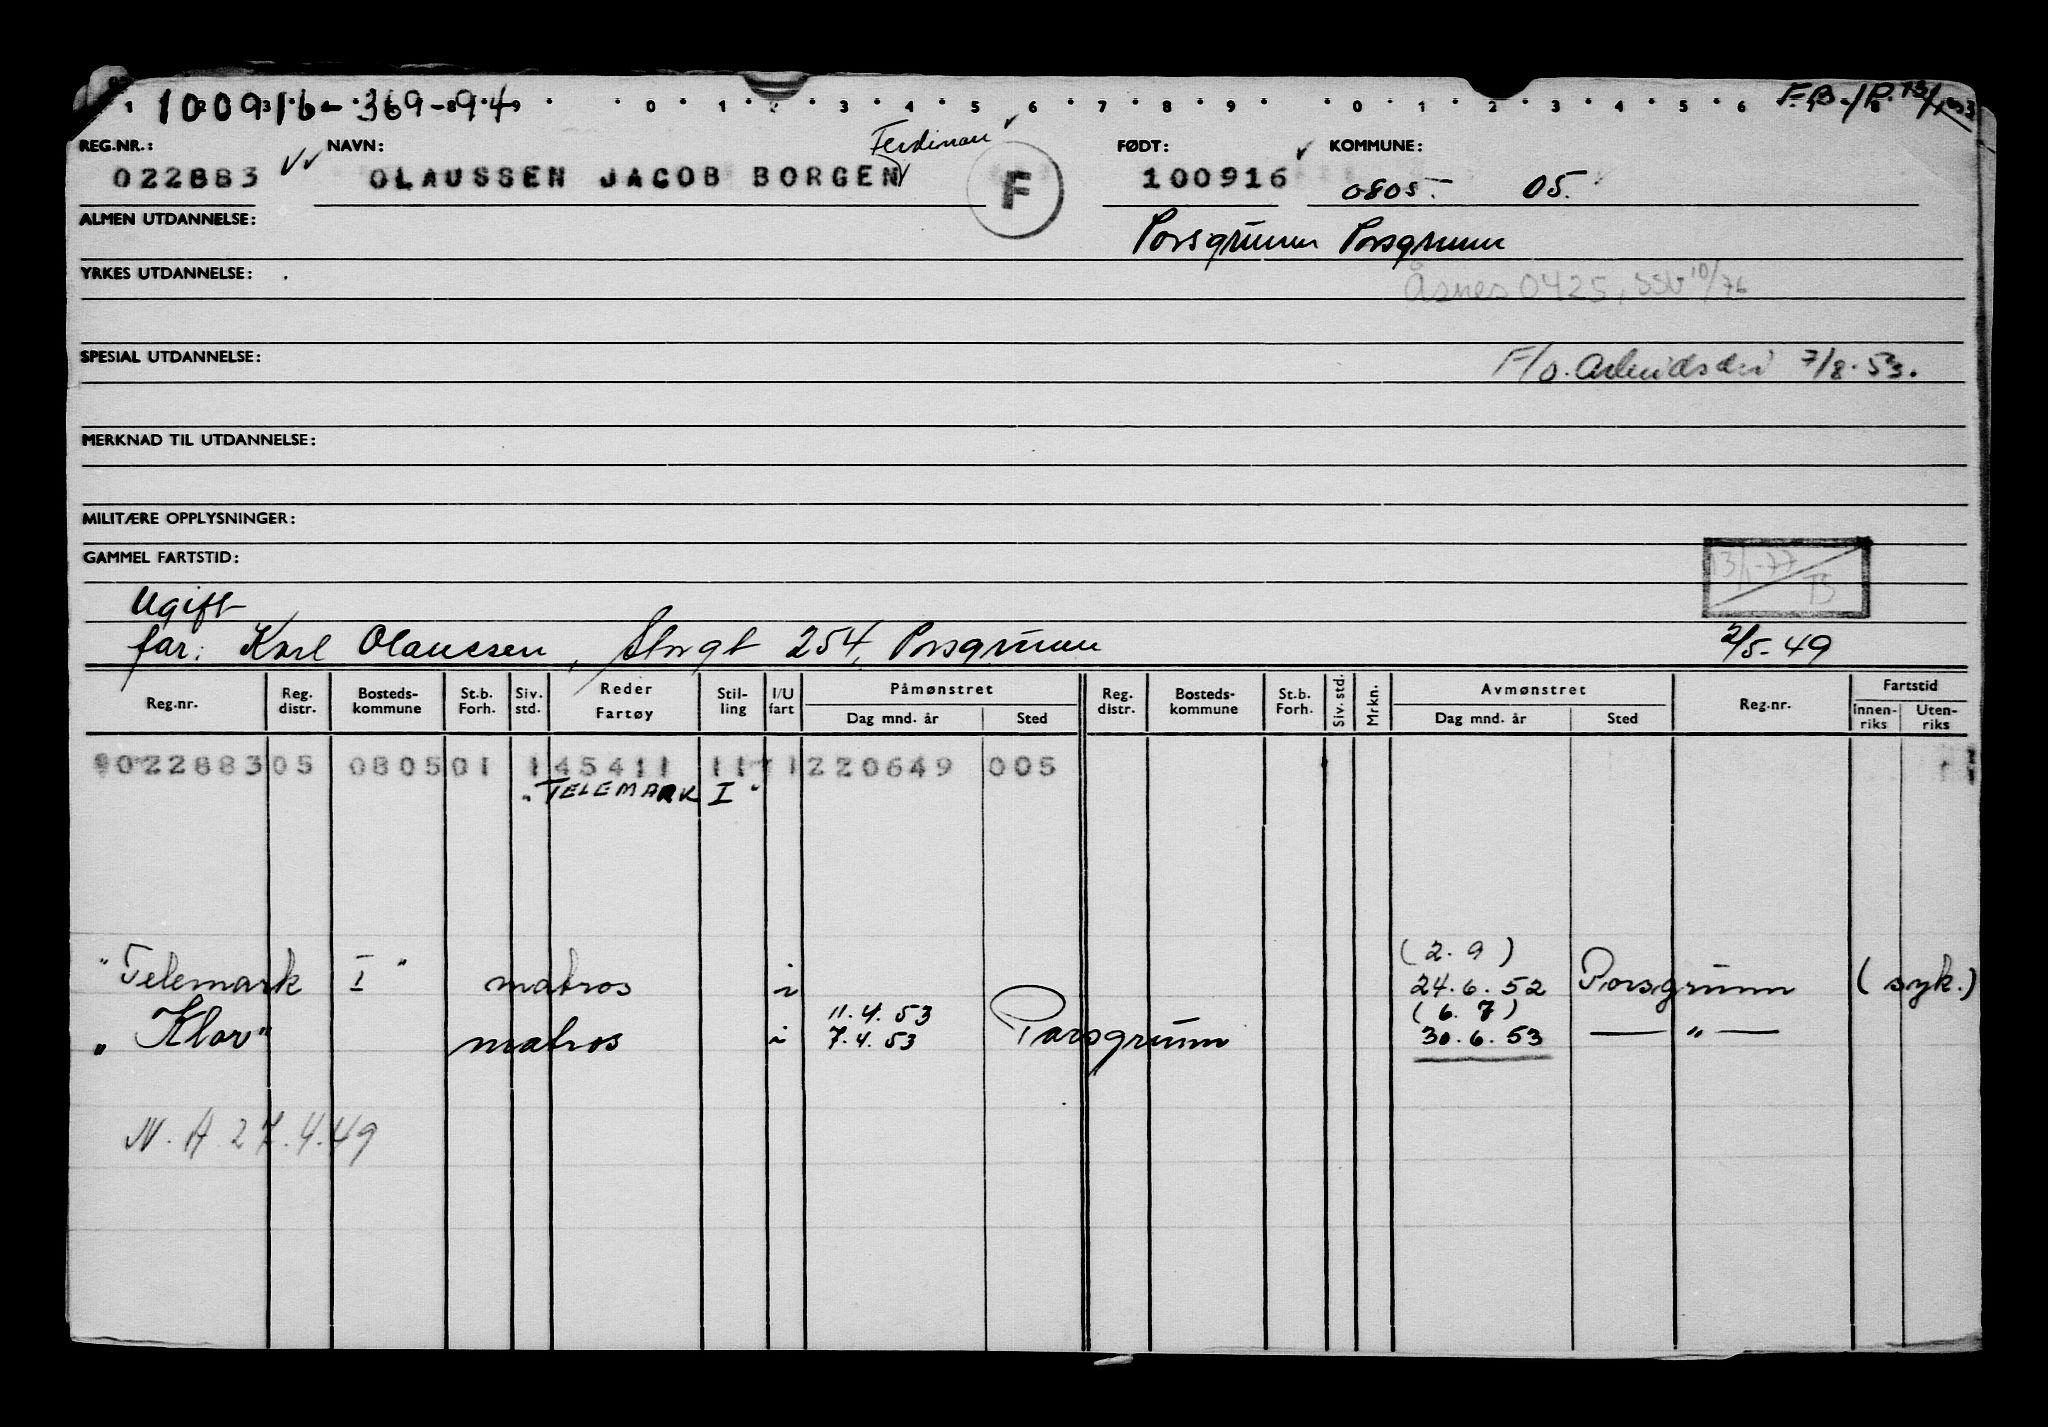 100916-36994 F.B./P.
1 2 3 4 5 6 7 8 9 0 1 2 3 4 5 6
REG.NR.: NAVN: Ferdinan FØDT: KOMMUNE:
022883 OLAUSSEN JACOB BORGEN F 100916 0805. 05.
ALMEN UTDANNELSE: Porsgrunn Porsgrunn
YRKES UTDANNELSE: Åsnes 0425, SSB 10/76
SPESIAL UTDANNELSE: F/o. 7/8.53.
MERKNAD TIL UTDANNELSE:
MILITÆRE OPPLYSNINGER:
GAMMEL FARTSTID: 13/1-77 TB
Ugift
far: Karl Olaussen, Storgt 254, Porsgrunn 2/5-49
Reg.nr. Reg. distr. Bosteds-kommune St.b. Forh. Siv. std. Reder Fartøy Stil-ling I/U fart Påmønstret Dag mnd. år Sted Reg. distr. Bosteds-kommune St.b. Forh. Siv. std. Mrkn. Avmønstret Dag mnd. år Sted Reg.nr. Fartstid Innen-riks Uten-riks
022883 05 0805 01 1 45411 11 1 220649 005
"TELEMARK I"
(2.9)
"Telemark I" matros i 24.6.52 Porsgrunn (syk.)
11.4.53 (6.7)
"Klar" matros i 7.4.53 Porsgrunn 30.6.53 — " —
N.A 27.4.49